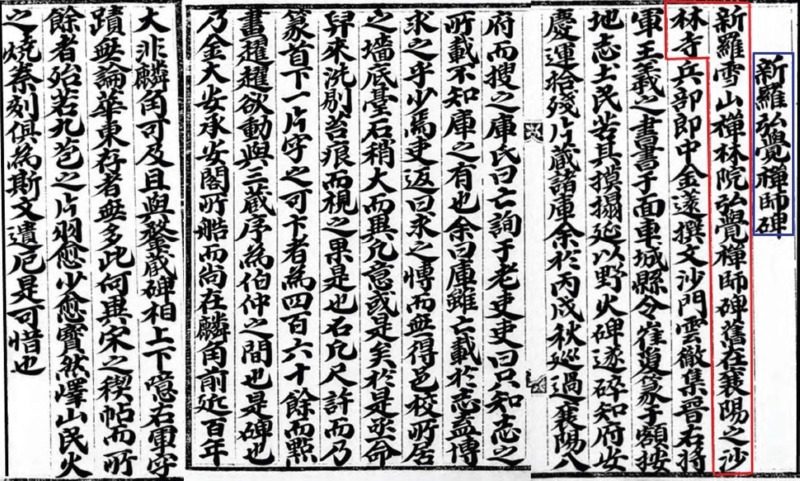 新羅弘覺禪師碑
新羅雪山禪林院弘覺禪師碑舊在襄陽之沙
林寺兵部郎中金薳撰文沙門雲徹集晋右將
軍王羲之書書于面車城縣令崔夐篆于額按
地志土民苦其摸搨延以野火碑遂碎知府安
慶運拾殘片藏諸庫余於丙戌秋巡過襄陽入
府而搜之庫氏曰亡詢于老吏吏曰只知志之
所載不知庫之有也余曰庫雖亡載於志盍博
求之乎少焉吏返曰求之慱而無得邑校所居
之墻底臺石稍大而異凡意或是矣於是亟命
舁來洗剔苔痕而視之果是也石凡尺許而乃
篆首下一片字之可卞者爲四百六十餘而點
畫趯趯欲動與三藏序爲伯仲之間也是碑也
乃金大安承安閣所而尚在麟角前近百年
大非麟角可及且與鍪藏碑相上下隱右軍字
蹟無論華東存者無多此何異宋之稧帖而所
餘者殆若九苞之片羽愈少愈寶然嶧山民火
之燒蔡刻俱爲斯文遭厄是可惜也